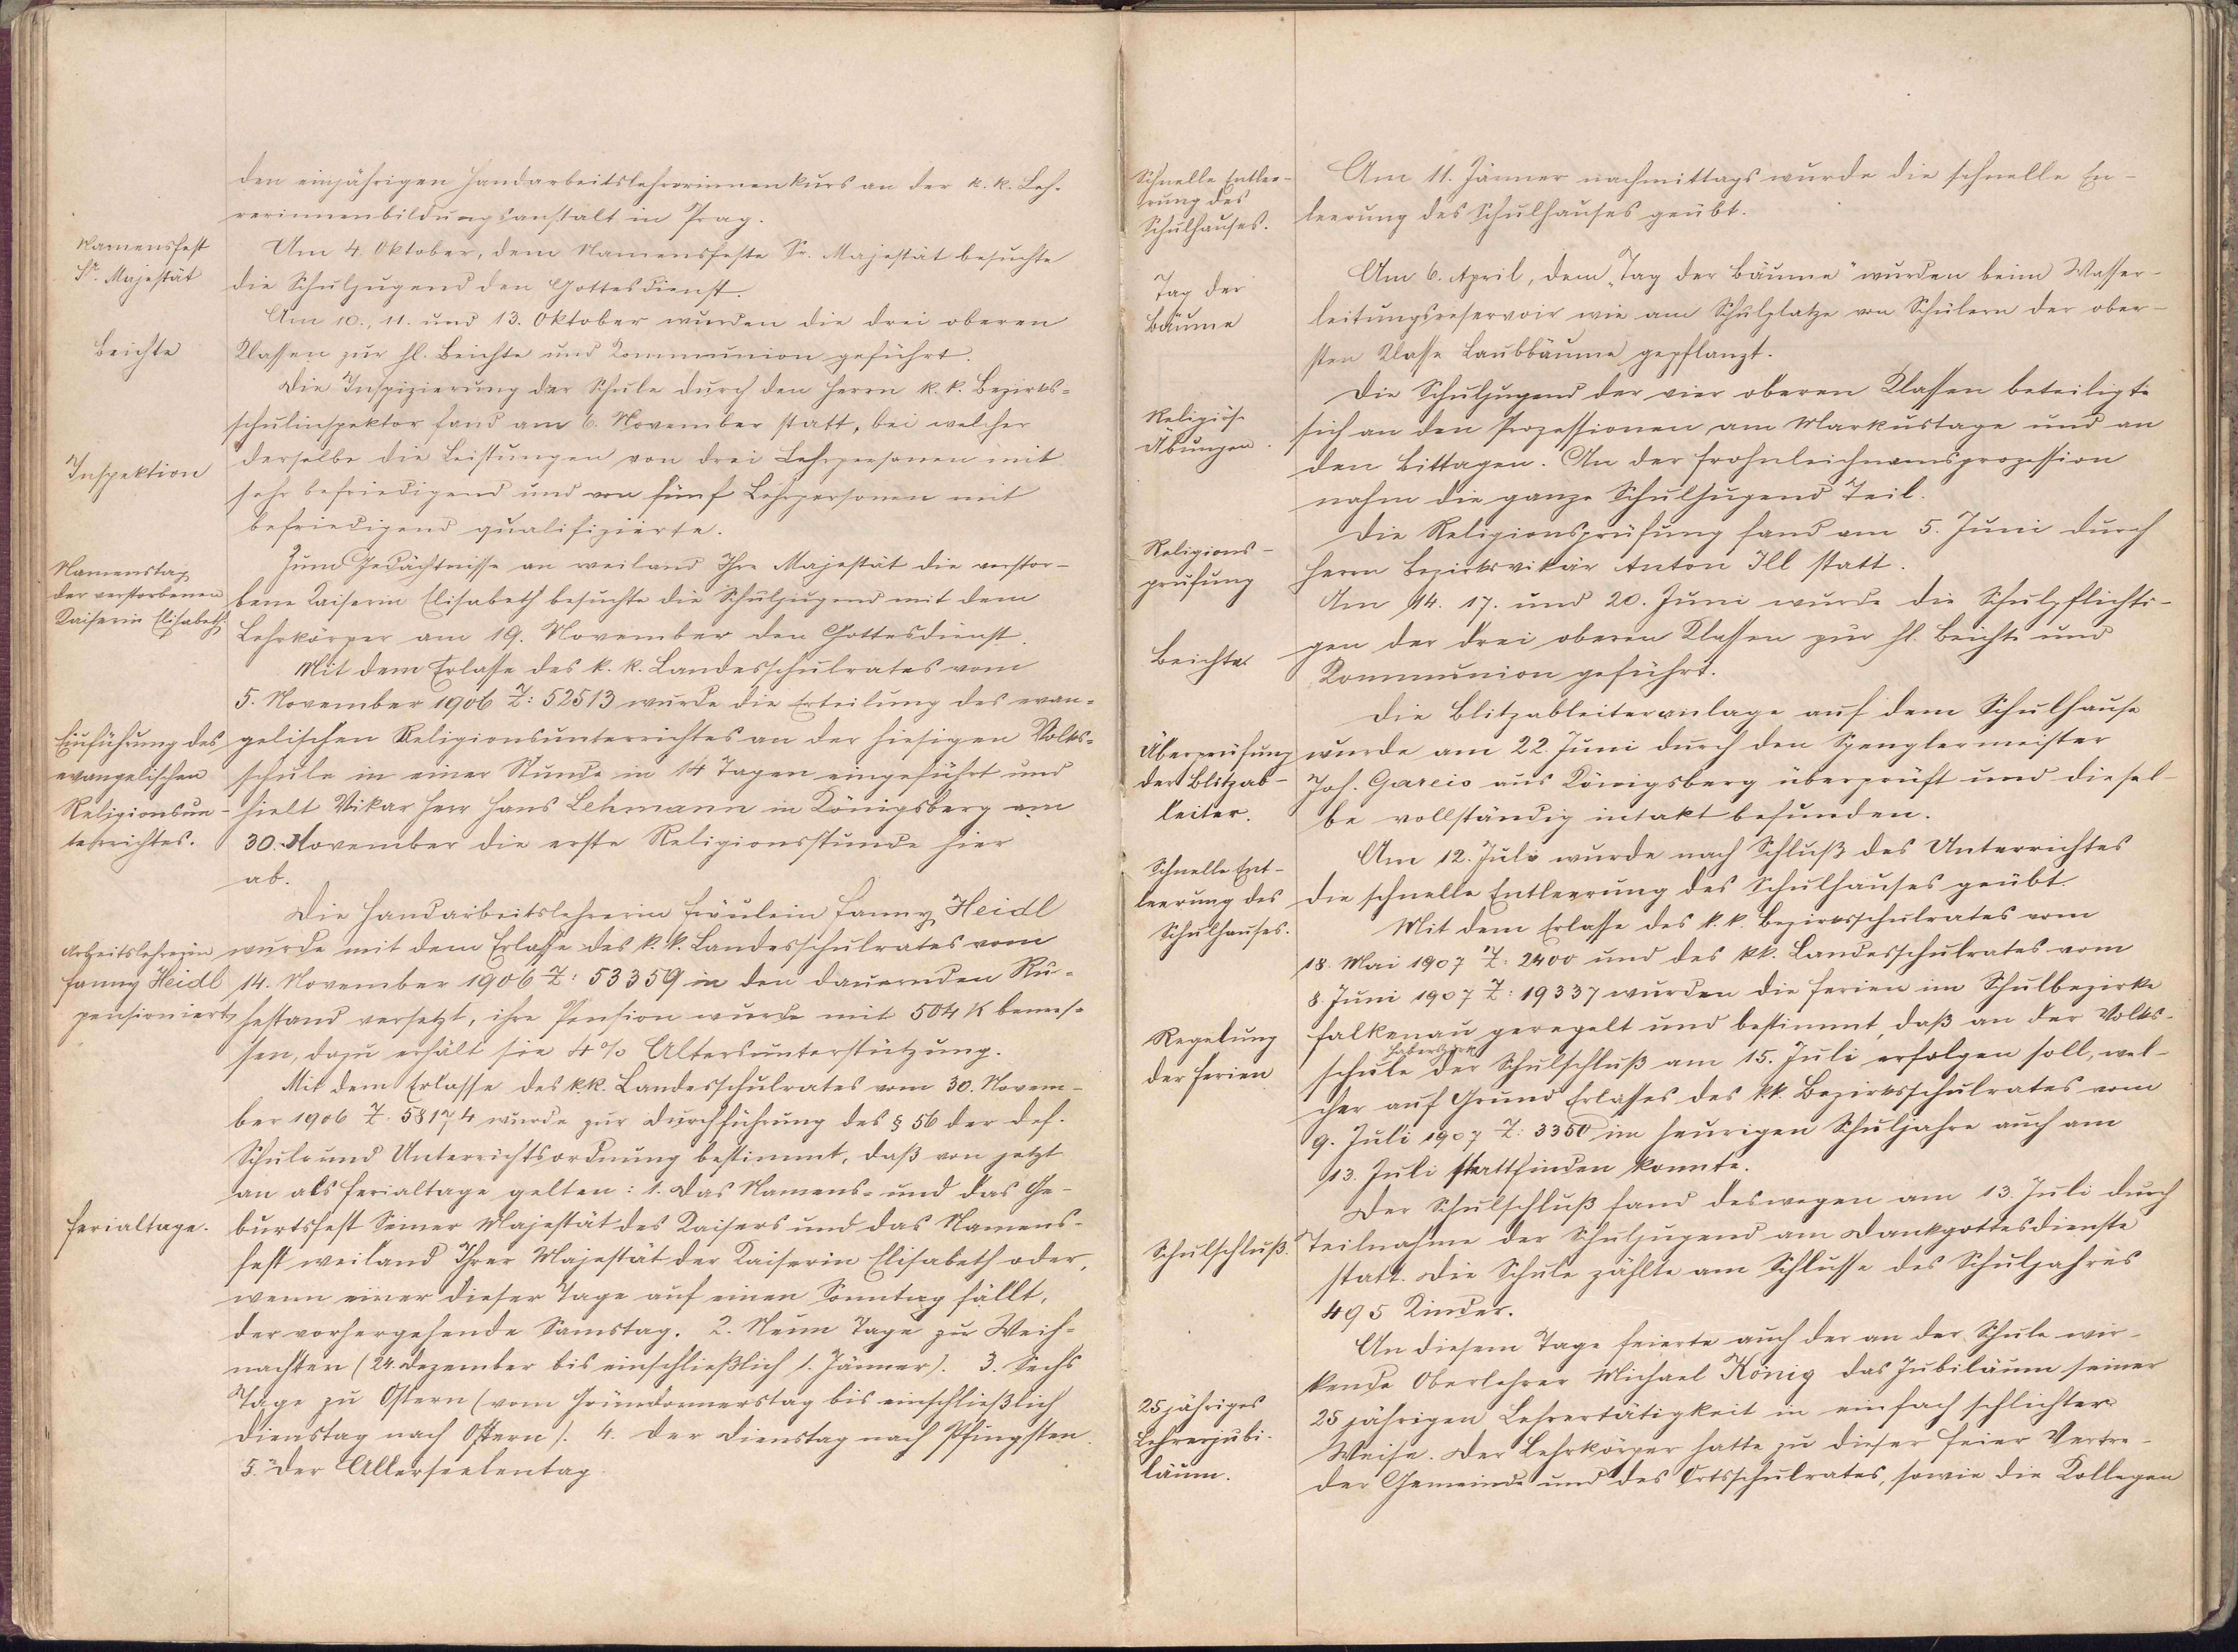 den einjährigen Handarbeitslehrerinnenkurs an der k. k. Leh-
rerinnenbildungsanstalt in Prag.
Namensfest
Sr. Majestät
Am 4. Oktober, dem Namensfeste Sr. Majestät besuchte
die Schuljugend den Gottesdienst.
Beichte
Am 10., 11. und 13. Oktober wurden die drei oberen
Klassen zur hl. Beichte und Kommunion geführt.
Inspektion
Die Inspizierung der Schule durch den Herrn k. k. Bezirks-
schulinspektor fand am 6. November statt, bei welcher
derselbe die Leistungen von drei Lehrpersonen mit
sehr befriedigend und von fünf Lehrpersonen mit
befriedigend qualifizierte.
Namenstag
der verstorbenen
Kaiserin Elisabeth.
Zum Gedächtnisse an weiland Ihre Majestät die verstor-
bene Kaiserin Elisabeth besuchte die Schuljugend mit dem
Lehrkörper am 19. November den Gottesdienst.
Einführung des
evangelischen
Religionsun-
terrichtes.
Mit dem Erlasse des k. k. Landesschulrates vom
5. November 1906 Z: 52513 wurde die Erteilung des evan-
gelischen Religionsunterrichtes an der hiesigen Volks-
schule in einer Stunde in 14 Tagen eingeführt und
hielt Vikar Herr Hans Lehmann in Königsberg am
30. November die erste Religionsstunde hier
ab.
Arbeitslehrerin
Fanny Heidl
pensioniert
Die Handarbeitslehrerin Fräulein Fanny Heidl
wurde mit dem Erlasse des k. k. Landesschulrates vom
14. November 1906 Z: 53359 in den dauernden Ru-
hestand versetzt, ihre Pension wurde mit 504 K bemes-
sen, dazu erhält sie 4% Altersunterstützung.
Ferialtage.
Mit dem Erlasse des k.k. Landesschulrates vom 30. Novem-
ber 1906 Z. 58174 wurde zur Durchführung des § 56 der def.
Schul- und Unterrichtsordnung bestimmt, daß von jetzt
an als Ferialtage gelten: 1. Das Namens- und das Ge-
burtsfest Seiner Majestät des Kaisers und das Namens-
fest weiland Ihrer Majestät der Kaiserin Elisabeth oder,
wenn einer dieser Tage auf einen Sonntag fällt,
der vorhergehende Samstag. 2. Neun Tage zu Weih-
nachten (24. Dezember bis einschließlich 1. Jänner). 3. Sechs
Tage zu Ostern (vom Gründonnerstag bis einschließlich
Dienstag nach Ostern). 4. Der Dienstag nach Pfingsten.
5. Der Allerseelentag
Schnelle Entlee-
rung des
Schulhauses.
Am 11. Jänner nachmittags wurde die schnelle En-
leerung des Schulhauses geübt.
Tag der
Bäume
Am 6. April, dem „Tag der Bäume" wurden beim Wasser-
leitungsreservoir wie am Schulplatze von Schülern der ober-
sten Klasse Laubbäume gepflanzt.
Religiöse
Übungen.
Die Schuljugend der vier oberen Klassen beteiligte
sich an den Prozessionen am Markustage und an
den Bittagen. An der Frohnleichnamsprozession
nahm die ganze Schuljugend Teil.
Religions-
prüfung
Die Religionsprüfung fand am 5. Juni durch
Herrn Bezirksvikär Anton Ill statt.
Beichte.
Am 14. 17. und 20. Juni wurde die Schulpflichti-
gen der drei oberen Klassen zur hl. Beichte und
Kommunion geführt.
Überprüfung
der Blitzab-
leiter.
Die Blitzableiteranlage auf dem Schulhause
wurde am 22. Juni durch den Spenglermeister
Joh. Gareis aus Königsberg überprüft und diesel-
be vollständig intakt befunden.
Schnelle Ent-
leerung des
Schulhauses.
Am 12. Juli wurde nach Schluß des Unterrichtes
die schnelle Entleerung des Schulhauses geübt.
Regelung
der Ferien
Mit dem Erlasse des k. k. Bezirksschulrates vom
18. Mai 1907 Z: 2400 und des k.k. Landesschulrates vom
8. Juni 1907 Z: 19337 wurden die Ferien im Schulbezirke
Falkenau geregelt und bestimmt, daß an der Volks-
schule Haberspirk der Schulschluß am 15. Juli erfolgen soll, wel-
cher auf Grund Erlasses des k.k. Bezirksschulrates vom
9. Juli 1907 Z: 3350 im heurigen Schuljahre auch am
13. Juli stattfinden konnte.
Schulschluß.
Der Schulschluß fand deswegen am 13. Juli durch
Teilnahme der Schuljugend am Dankgottesdienste
statt. Die Schule zählte am Schlusse des Schuljahres
495 Kinder.
25jähriges
Lehrerjubi-
läum.
An diesem Tage feierte auch der an der Schule wir-
kende Oberlehrer Michael König das Jubiläum seiner
25 jährigen Lehrertätigkeit in einfach schlichter
Weise. Der Lehrkörper hatte zu dieser Feier Vertre-
der Gemeinde und des Ortsschulrates, sowie die Kollegen